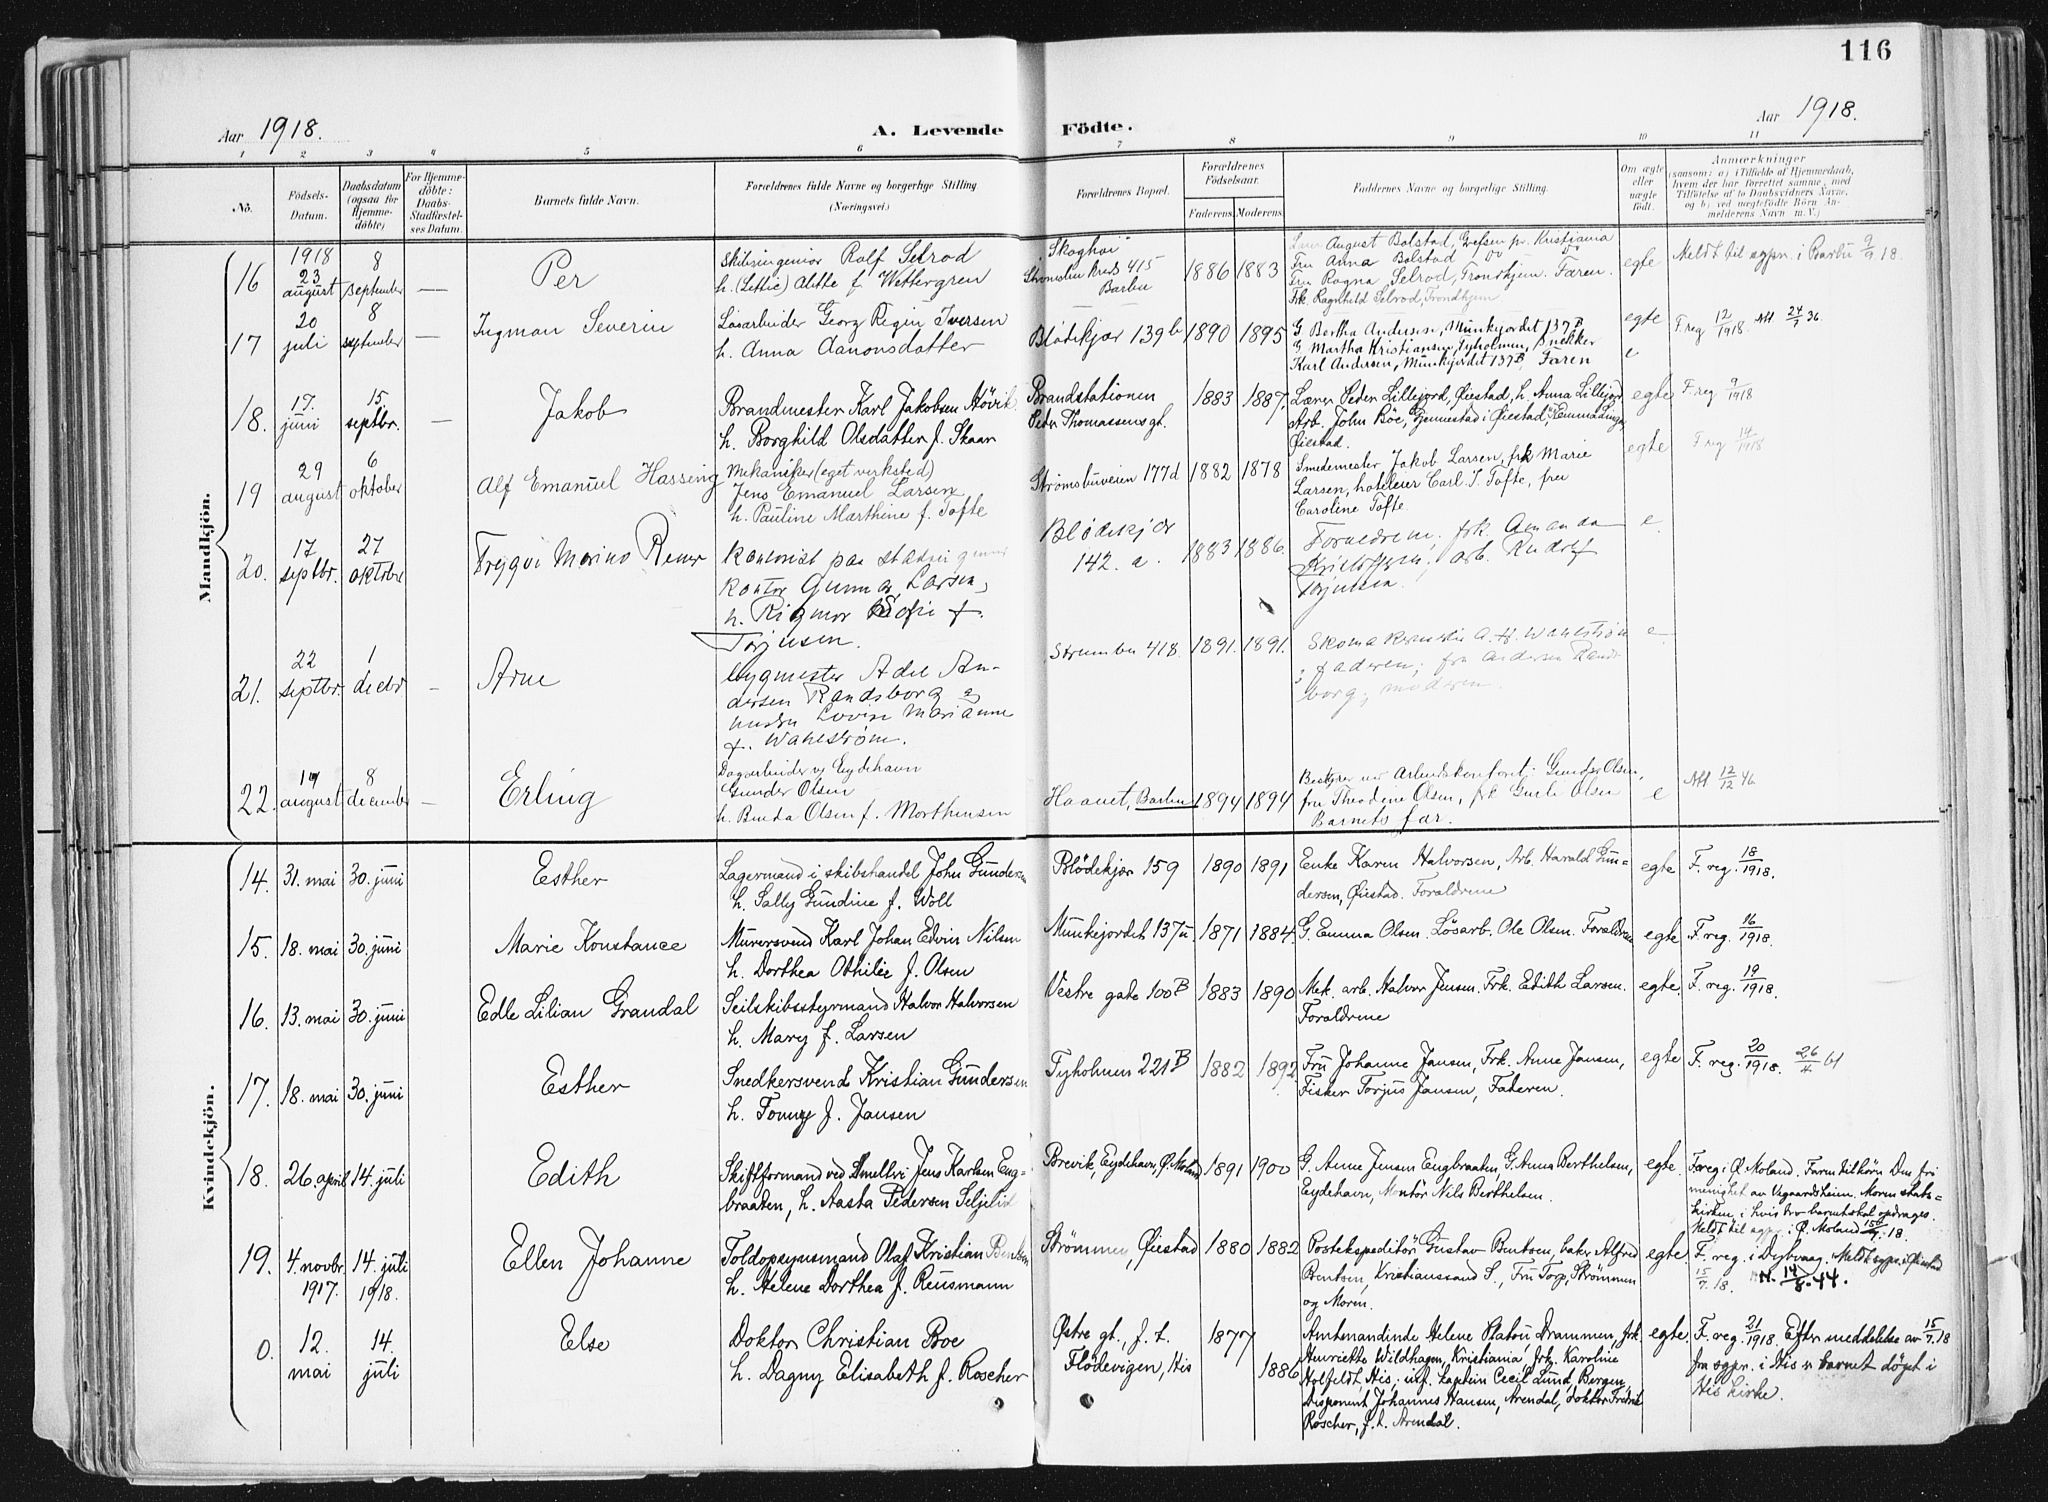 116
Aar 1918.
A. Levende Födte.
Aar 1918.
1 2 3 4 5 6 7 8 9 10 11
No.
Födsels-
Datum.
Daabsdatum
(ogsaa for
Hjemme-
döbte)
For Hjemme-
döbte:
Daabs-
Stadfæstel-
ses Datum.
Barnets fulde Navn.
Forældrenes fulde Navne og borgerlige Stilling
(Næringsvei.)
Forældrenes Bopæl.
Forældrenes
Födselsaar.
Faderens. Moderens.
Faddernes Navne og borgerlige Stilling.
Om ægte
eller
uægte
födt.
Anmærkninger
(saasom: a) i Tilfælde af Hjemmedaab,
hvem der har forrettet samme, med
Tilföielse af to Daabsvidners Navne,
og b) ved uægtefödte Börn An-
melderens Navn m. V.)
Mandkjön.
16
1918
23
august
8
september
—
Per
Skibsingeniør Rolf Selrod
h. (Lettie) Alette f. Wettergren
Skoghøi
Strømsbu kreds 415
Barbu
1886 1883
August Bolstad, Grefsen pr. Kristiania
Fru Anna Bolstad do
Fru Ragna Selrod, Trondhjem. Faren.
Frk. Ragnhild Selrod, Trondhjem
egte
Meldt til sgpr. i Barbu 9/9 18.
17
20
juli
8
september
—
Ingman Severin
Løsarbeider Georg Regin Iversen
h. Anna Aanonsdatter
Blødekjær 139 b
1890 1895
G. Bertha Andersen, Munkejordet 137 B
G. Martha Kristiansen, Tyholmen, Snekker
Karl Andersen, Munkejordet 137 B, Faren
egte
e
F. reg 12/1918. Att 24/7 36.
18.
17.
juni
15.
septbr.
—
Jakob
Brandmester Karl Jakobsen Høvik
h. Borghild Olsdatter f. Skaar
Brandstationen
Peter Thomassens gt.
1883 1887.
Lærer Peder Lillejord, Øiestad, h. Anna Lillejord
Arb. John Böe, Gjennestad i Øiestad,
Øiestad.
egte
F. reg 9/1918
19
29
august
6
oktober
Alf Emanuel Hassing
Mekaniker (eget verksted)
Jens Emanuel Larsen
h. Pauline Marthine f. Tofte
Strømsbuveien 177 d
1882 1878
Smedemester Jakob Larsen, frk Marie
Larsen, hoteleier Carl J. Tofte, fru
Caroline Tofte
egte
F. reg 14/1918
20.
17
septbr.
27
oktober
Tryggve Marino Reiner
Kontorist paa stadsingeniør
kontor Gunnar Larsen,
h. Rigmor Sofie f.
Torjusen.
Blødekjær
142. a.
1883 1886.
Forældrene, frk. Amanda
Kristoffersen, arb. Rudolf
Torjusen.
e.
21.
22
septbr.
1
decbr
—
Arne
Bygmester Adel An-
dersen Randsborg og
hustru Lovise Marianne
f. Wahlstrøm.
Strømbu 418.
1891. 1891.
Skomakermester A. H. Wahlstrøm
faderen; fru Andersen Rands-
borg; moderen.
e
22.
14
august
8
december
—
Erling
Dagarbeider v/ Eydehavn
Gunder Olsen
h. Benda Olsen f. Morthensen
Haavet, Barbu
1894 1894
Bestyrer ver Arbeidskontoret: Gunder Olsen,
fru Theodine Olsen, frk Gurli Olsen
Barnets far.
e
Att 12/12 46
Kvindekjön.
14.
31. mai
30. juni
Esther
Lagermand i skibshandel John Gundersen
h. Sally Gundine f. Woll
Blödekjær 159
1890 1891
Enke Karen Halvorsen, Arb. Harald Gun=
dersen, Øiestad. Forældrene
egte
F. reg. 18/1918.
15.
18. mai
30. juni
Marie Konstance
Murersvend Karl Johan Edvin Nilsen
h. Dorthea Othilie f. Olsen
Munkejordet 137 u
1871 1884.
G. Emma Olsen. Lösarb. Ole Olsen. Forældrene
egte
F. reg. 16/1918.
16.
13. mai
30. juni
Edle Lilian Grandal
Seilskibsstyrmand Halvor Halvorsen
h. Mary f. Larsen
Vestre gate 100 B
1883 1890
Mek. arb. Halvor Jensen. Frk. Edith Larsen.
Forældrene
egte.
F. reg. 19/1918.
17.
18. mai
30. juni
Esther
Snedkersvend Kristian Gundersen
h. Tomy f. Jansen
Tyholmen 221 B
1882 1892
Fru Johanne Jansen, Frk. Anne Jansen,
Fisker Torjus Jansen, Faderen.
egte
F. reg. 20/1918. 26/4 61
18.
26. april
14. juli
Edith
Skiftformand ved Smeltev. Jens Karlsen Eng=
braaten, h. Aasta Pedersen Seljelid
Brevik, Eydehavn, Ø. Moland
1891 1900
G. Anne Jensen Engbraaten, G. Anna Berthelsen,
Eydehavn, Montör Nils Berthelsen.
egte.
F. reg i Ø. Moland. Faren tilhörer Den fri
menighet av Vegaardsheien. Moren stats=
kirken, i hvis tro barnet skal opdrages.
Meldt til sgpr. i Ø. Moland 15/7 18.
19.
4. novbr.
1917.
14. juli
1918.
Ellen Johanne
Toldopsynsmand Olaf Kristian Bentsen
h. Helene Dorthea f. Reusmann
Strömmen, Øiestad
1880 1882
Postekspeditör Gustav Bentsen, baker Alfred
Bentsen, Kristianssand S., Fru Torp, Strömmen
og Moren.
egte.
F. reg. i Dybvaag. Meldt sgpr. i Øiestad
15/7. 18. N. 14/8. 44.
0.
12.
mai
14.
juli
Else
Doktor Christian Boe
h. Dagny Elisabeth f. Roscher
Østre gt., f. t.
Flödevigen, His
1877
1886
Amtmandinde Helene Platou, Drammen, frk.
Henriette Wildhagen, Kristiania, frk. Karoline
Holfeldt, His, inf. kaptein Cecil Lund, Bergen,
Disponent Johannes Hansen, Arendal, doktor Fredrik
Roscher, f. t. Arendal.
egte.
F. reg. 21/1918. Efter meddelelse av 15/7. 18
fra sgpr. i His er barnet döpt i
His kirke.